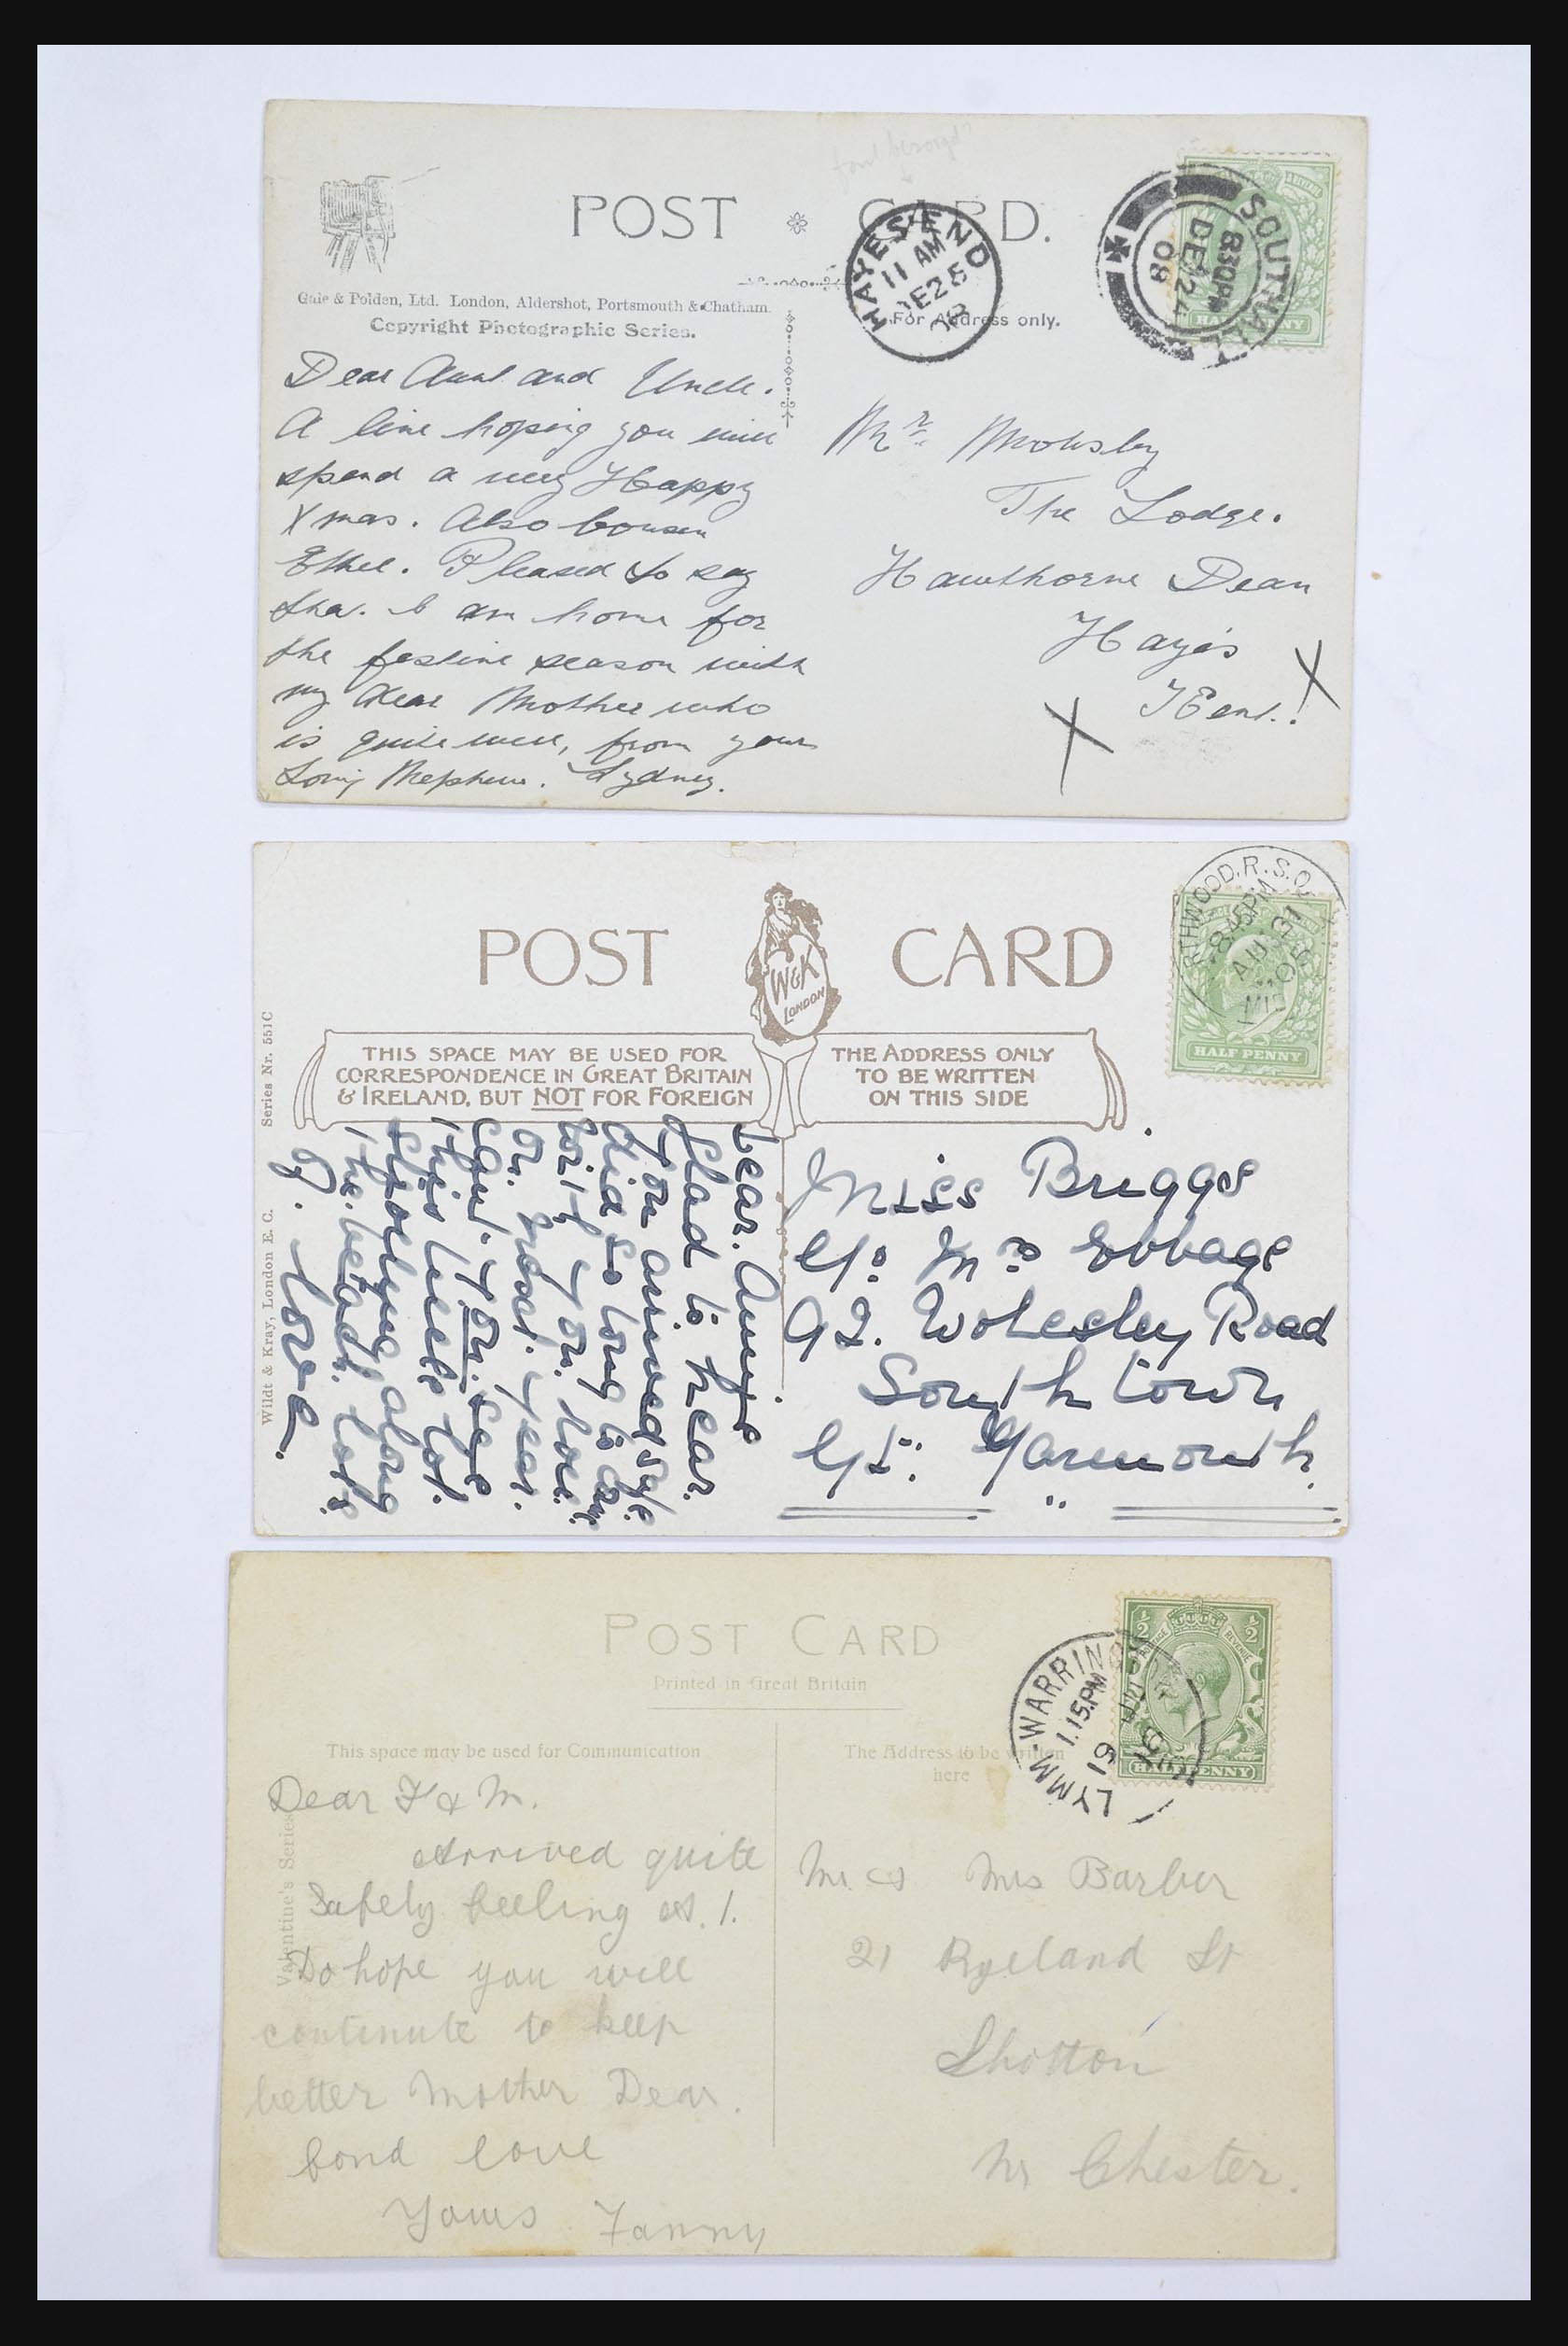 POST CARD.
Gale & Polden, Ltd. London, Aldershot, Portsmouth & Chatham
Copyright Photographic Series.
For Address only.
HAYES END
11 AM
DE 25
08
SOUTHALL
8 30 PM
DE 24
08
HALFPENNY
Dear Aunt and Uncle.
A line hoping you will
spend a very Happy
Xmas. Also Cousen
Ethel. Pleased to say
tha. I am home for
the festive season with
my dear Mother who
is quite well, from your
Loving Nephew. Sydney.
Mr.
The Lodge.
Hawthorne Dean
Hayes
Kent.!
X X
POST CARD
W&K
LONDON
THIS SPACE MAY BE USED FOR
CORRESPONDENCE IN GREAT BRITAIN
& IRELAND, BUT NOT FOR FOREIGN
THE ADDRESS ONLY
TO BE WRITTEN
ON THIS SIDE
RTHWOOD. R.S.O.
8.45PM
AU
05
HALF PENNY
Series Nr. 551C
Wildt & Kray, London E. C.
Dear. Annye
Glad to hear.
you arrived safe.
did so long to
with you. love.
on. next. year.
can't you. see
this little lot.
strolying along
the. beach. lots
of. love.
Miss Briggs
c/o Mrs
92. Wolesley Road
South town
Gt. Yarmouth
POST CARD
Printed in Great Britain
This space may be used for Communication
The Address to be written
here
Valentine's Series
LYMM-WARRING
1.15PM
19
16
HALFPENNY
Dear F & M.
Arrived quite
Safely feeling A. 1.
Do hope you will
continute to keep
better Mother Dear.
fond love
Yours Fanny
Mr & Mrs Barber
21 Ryeland St
Shotton
Nr Chester.